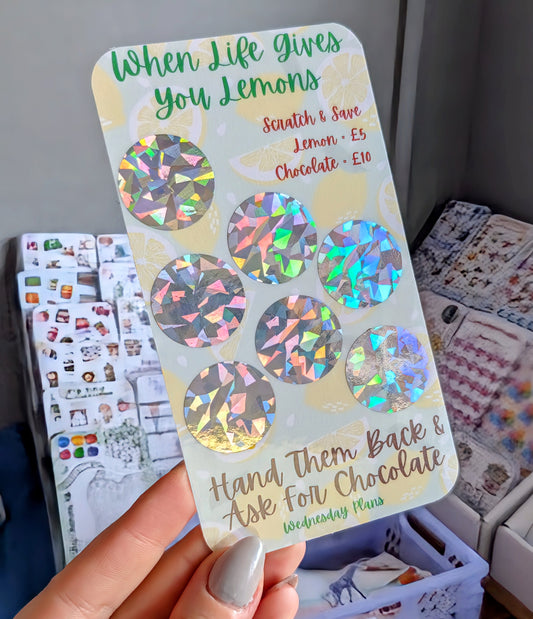 When Life Gives
You Lemons
Scratch & Save
Lemon = £5
Chocolate = £10
Hand Them Back &
Ask For Chocolate
Wednesday Plans